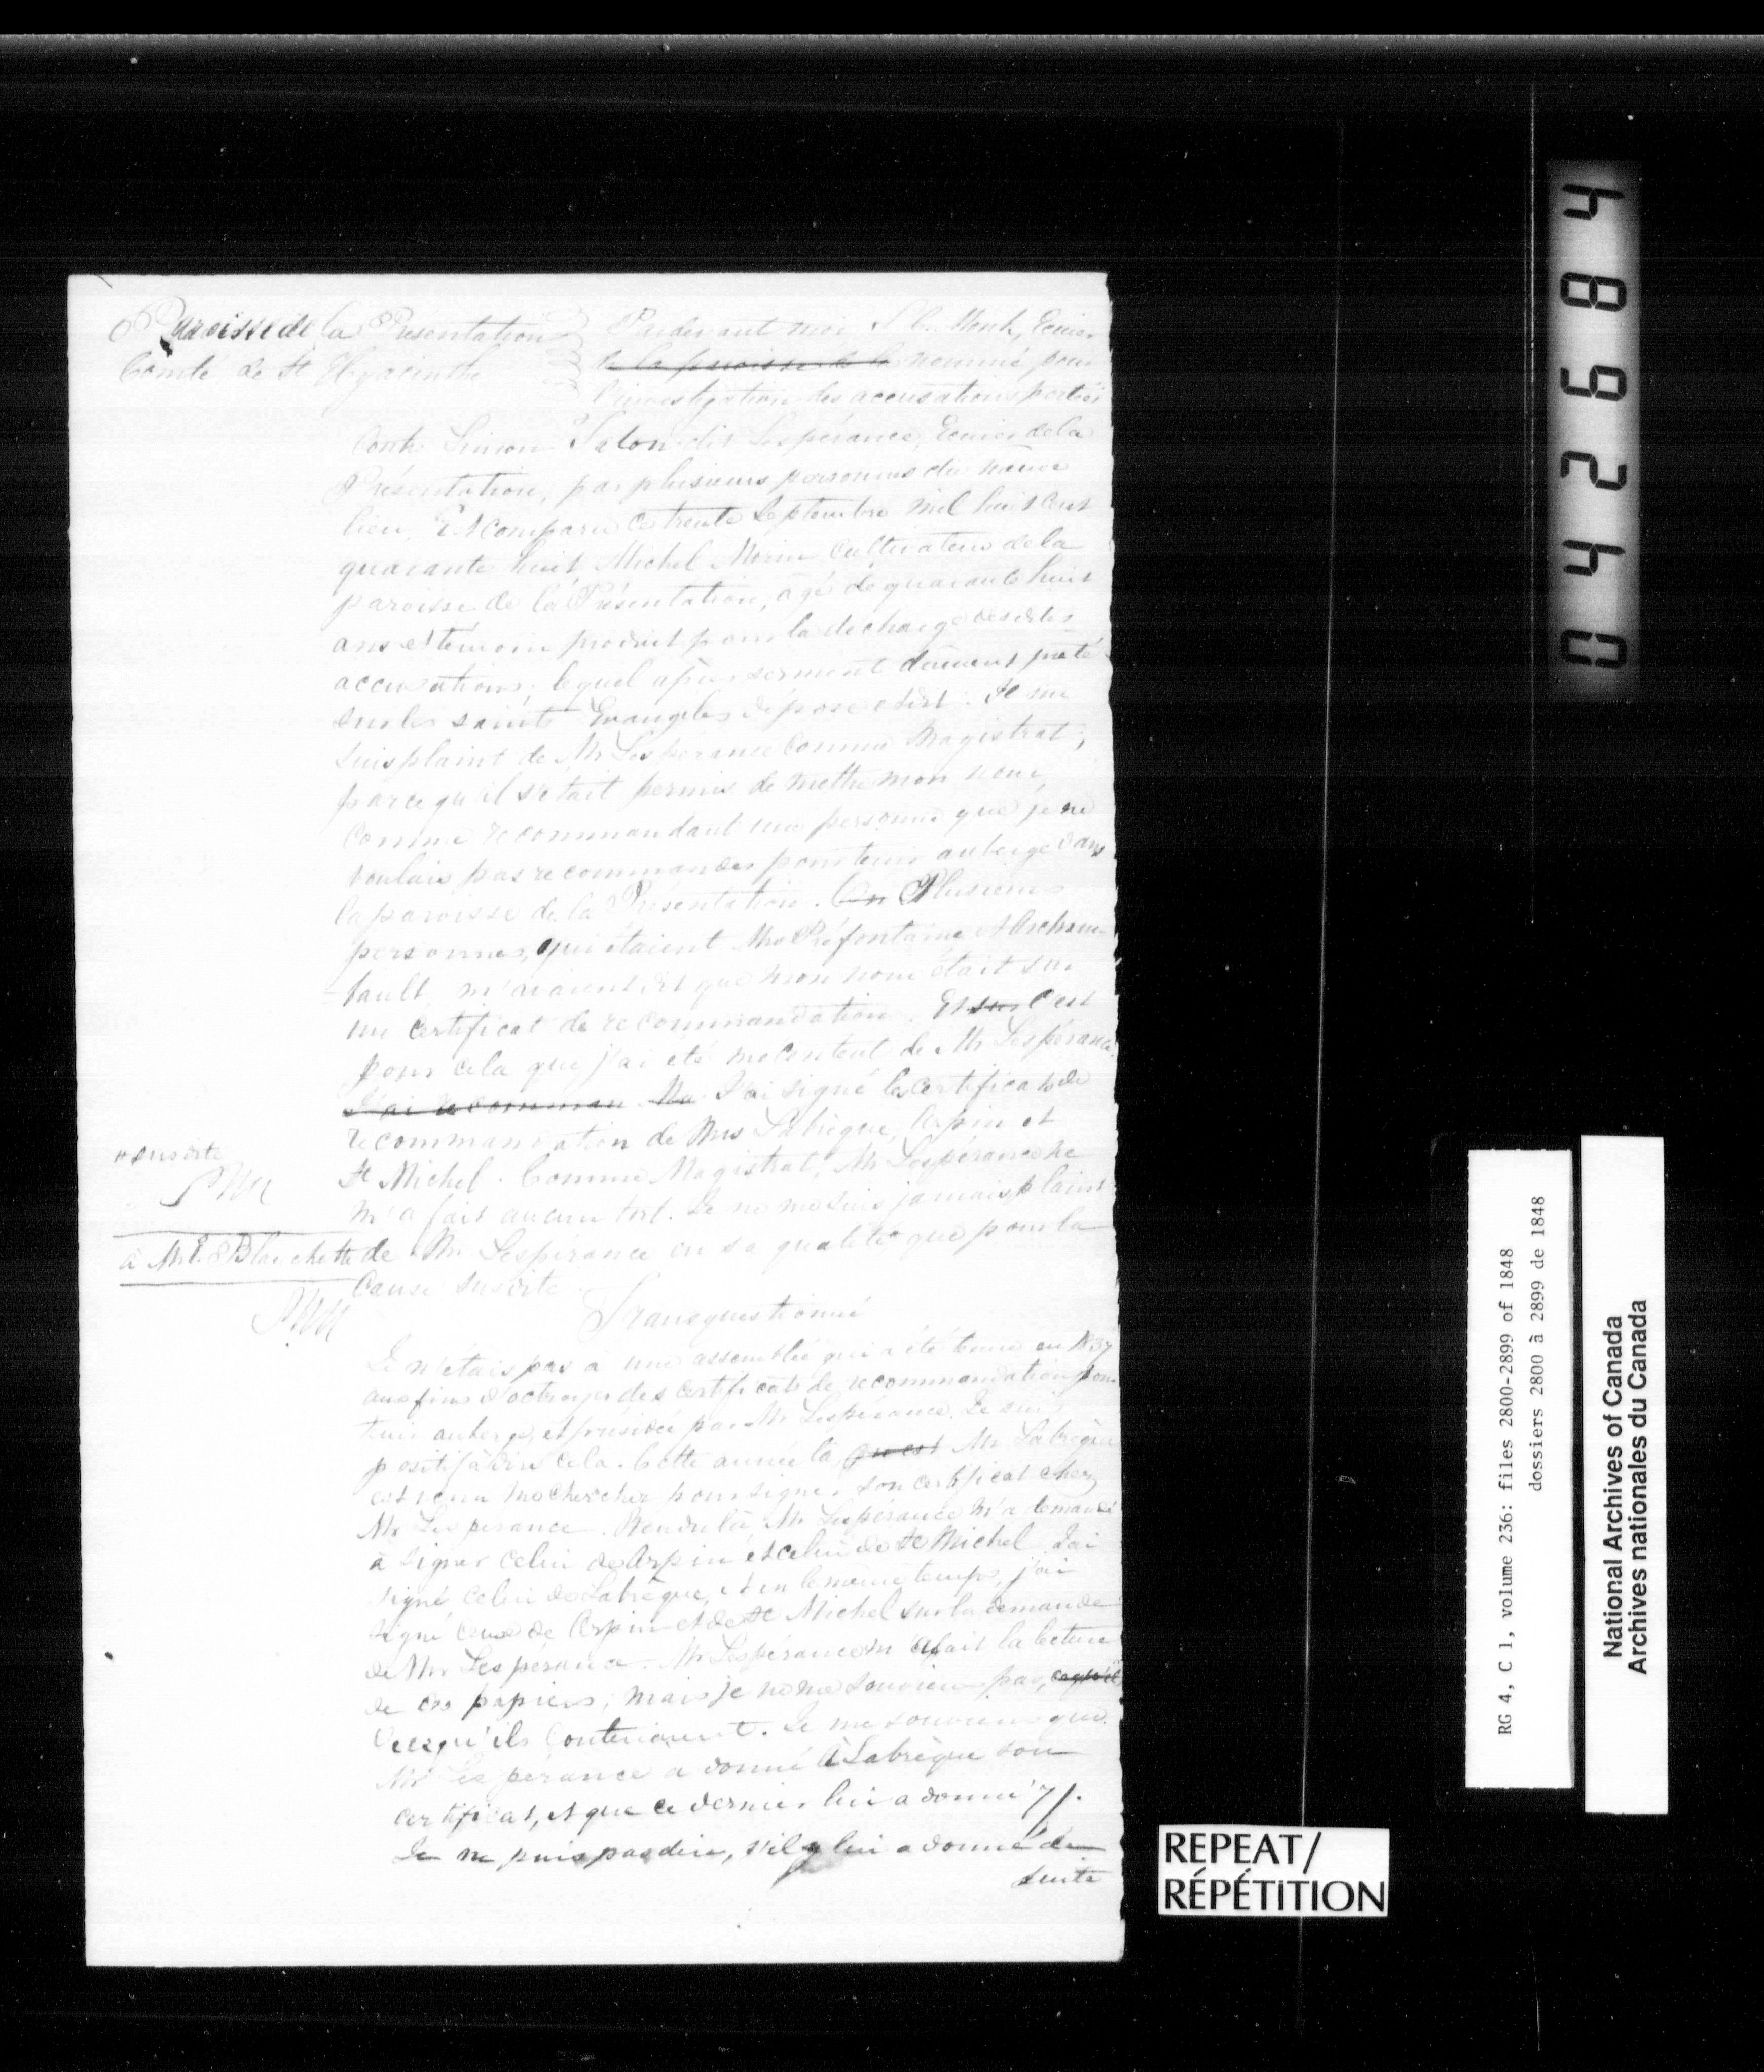 Paroisse de la Présentation
Comté de St Hyacinthe
Pardevant moi S. C. Monk, Ecuier
de la paroisse de la nommé pour
l'investigation des accusations portées
Contre Simon Talon dit Lespérance, Ecuier de la
Présentation, par plusieurs personnes du même
lieu, Est comparu ce trente Septembre mil huit cent
quarante huit Michel Morin Cultivateur de la
paroisse de la Présentation, âgé de quarante huit
ans et témoin produit pour la décharge desdites
accusations; lequel après serment dûment prêté
sur les saints Evangiles dépose et dit: Je me
suis plaint de Mr Lespérance comme Magistrat,
parce qu'il s'était permis de mettre mon nom,
comme recommandant une personne que je ne
voulais pas recommander pour tenir auberge dans
la paroisse de la Présentation. On Plusieurs
personnes, qui étaient Mrs Préfontaine et Archam-
-bault, m'avaient dit que mon nom était sur
un certificat de recommandation. Et sur C'est
pour cela que j'ai été mécontent de Mr Lespérance.
J'ai recomman Ma J'ai signé les certificats de
recommandation de Mrs Labrèque, Arpin et
St Michel. Comme Magistrat, Mr Lespérance ne
m'a fait aucun tort. Je ne me suis jamais plaint
susdite
à Mr. Blanchette
de Mr Lespérance en sa qualité que pour la
cause susdite.
Transquestionné
Je n'étais pas à une assemblée qui a été tenue en 1837
aux fins d'octroyer des certificats de recommandation pour
tenir auberge, et présidée par Mr Lespérance. Je suis
positif à dire cela. Cette année là Mr Labrèque
est venu me chercher pour signer son certificat chez
Mr Lespérance. Rendu là, Mr Lespérance m'a demandé
à signer celui de Arpin et celui de St Michel. J'ai
signé celui de Labrèque, et en le même temps, j'ai
signé ceux de Arpin et de St Michel sur la demande
de Mr Lespérance. Mr Lespérance m'a fait la lecture
de ces papiers; mais je ne me souviens pas, ce qu'il
de ce qu'ils contenaient. Je me souviens que
Mr Lespérance a donné à Labrèque son
certificat, et que ce dernier lui a donné 7/.
Je ne puis pas dire, s'il y lui a donné de
suite
0 4 2 6 8 4
RG 4, C 1, volume 236: files 2800-2899 of 1848
dossiers 2800 à 2899 de 1848
National Archives of Canada
Archives nationales du Canada
REPEAT/
RÉPÉTITION